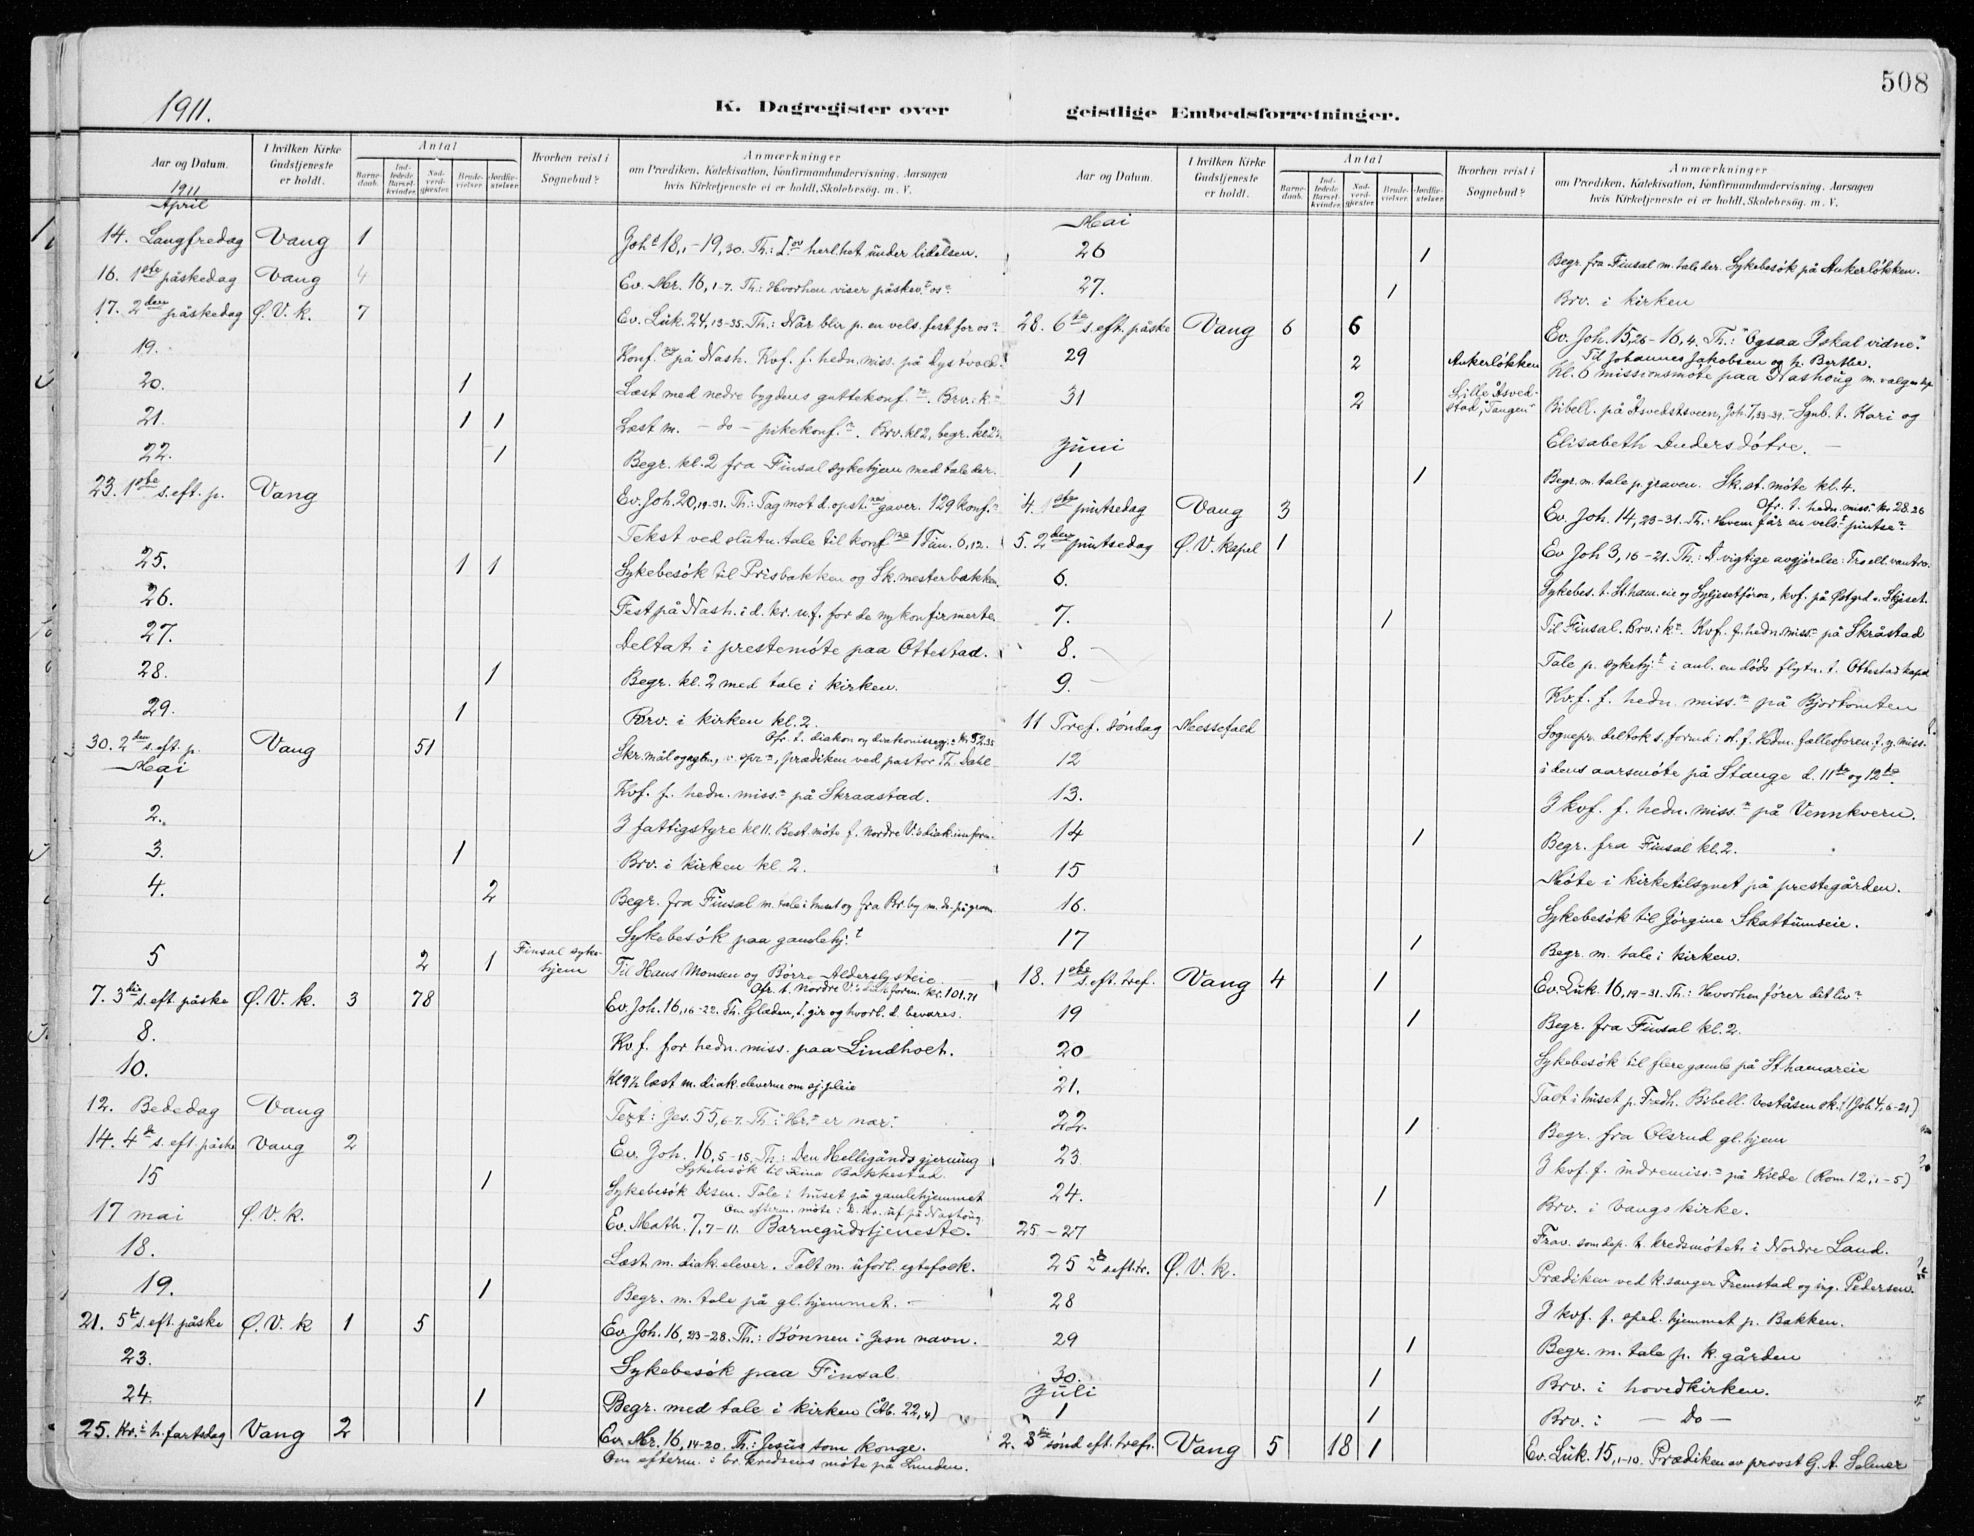 508
1911.
K. Dagregister over geistlige Embedsforretninger.
Aar og Datum.
I hvilken Kirke Gudstjeneste er holdt.
Antal
Barnedaab.
Indledede Barselkvinder.
Nadverdgjester.
Brudevielser.
Jordfæstelser.
Hvorhen reist i Sognebud?
Anmærkninger
om Prædiken, Katekisation, Konfirmandundervisning, Aarsagen
hvis Kirketjeneste ei er holdt, Skolebesög. m. V.
1911
April
14. Langfredag Vang 1 Joh 18,1-19,30. Th: herlhet under lidelsen.
16. 1ste påskedag Vang 4 Ev. Mr. 16,1-7. Th: Hvorhen viser påskev. os?
17. 2den påskedag Ø.V.k. 7 Ev. Luk. 24,13-35. Th: Når blir p. en vels. fest for os?
19. Konf. på Nash. Kvf. f. hedn. miss. på
20. 1 Læst med nedre bygdens guttekonf. Brv. i k.
21. 1 1 Læst m. - do - pikekonf. Brv. kl 2, begr. kl
22. 1 Begr. kl. 2 fra Finsal sykehjem med tale der.
23. 1ste s. eft. p. Vang Ev. Joh. 20,19-31. Th: Tag mot d. opst. gaver. 129 konf.
Tekst ved slutn. tale til konf. 1 Tim. 6,12.
25. 1 1 Sykebesök til Prisbakken og Sk.mesterbakken.
26. Fest på Nash. i d. kr. u.f. for de nykonfirmerte
27. Deltat i prestemöte paa Ottestad.
28. 1 Begr. kl. 2 med tale i kirken.
29. 1 Brv. i kirken kl. 2.
30. 2den s. eft. p. Vang 51 Ofr. t. diakon og diakonissegj. kr. 52.35
Skr.mål og , prædiken ved pastor Th. Dahl
Mai
1 Kvf. f. hedn. miss. på Skraastad.
2. I fattigstyre kl 11. Best.möte f. nordre V.
3. 1 Brv. i kirken kl. 2.
4. 2 Begr. fra Finsal m. tale i huset og fra m. do. på graven
Sykebesök paa gamlehj.
5 2 1 Finsal sykehjem Til Hans Monsen og Börre
7. 3die s. eft. påske Ø.V.k. 3 78 Ofr. t. Nordre V. foren. kr. 101.71
Ev. Joh. 16,16-22. Th. Glæden, J. gir og hvorl. d. bevares.
8. Kvf. for hedn. miss. paa Lindholt.
10. Kl 9½ læst m. diak.eleverne om sj.pleie
12. Bededag Vang Text: Jes. 55,6-7. Th: Hr. er nær.
14. 4de s. eft. påske Vang 2 Ev. Joh. 16,5-15. Th: Den Helligånds gjerning
Sykebesök til Bakkestad.
15 1 Sykebesök Disen. Tale i huset på gamlehjemmet
Om efterm. möte i d. kr. uf på Nashoug
17 mai Ø.V.k. Ev. Math. 7,7-11. Barnegudstjeneste.
18. Læst m. diak.elever. Talt m. uforl. egtefolk.
19. 1 Begr. m. tale på gl. hjemmet. -
21. 5te s. eft. påske Ø.V.k 1 5 Ev. Joh. 16,23-28. Th: Bönnen i Jesu navn.
23. Sykebesök paa Finsal
24. 1 Begr. med tale i kirken (Åb. 22,4)
25. Kr. h.fartsdag Vang 2 Ev. Mr. 16,14-20. Th: Jesus som konge.
Om efterm. i br.kredsens möte på Lunden.
Aar og Datum.
I hvilken Kirke Gudstjeneste er holdt.
Antal
Barnedaab.
Indledede Barselkvinder.
Nadverdgjester.
Brudevielser.
Jordfæstelser.
Hvorhen reist i Sognebud?
Anmærkninger
om Prædiken, Katekisation, Konfirmandundervisning, Aarsagen
hvis Kirketjeneste ei er holdt, Skolebesög. m. V.
Mai
26 1 Begr. fra Finsal m. tale der. Sykebesök på Ankerlökken.
27. 1 Brv. i kirken
28. 6te s. eft. påske Vang 6 6 Ev. Joh. 15,26-16,4. Th: "Ogsaa I skal vidne".
29 2 Ankerlökken Til Johannes Jakobsen og h. Berthe.
Kl. 6 missionsmöte paa Nashoug m. valg
31 2 Lille Åsvedstad, "Tangen" Bibell. på Åsvedstveen, Joh 7, - Sgnb. t. Kari og
Elisabeth Andersdötre. -
Juni
1 1 Begr. m. tale p. graven. Sk.st. möte kl. 4.
4. 1ste pintsedag Vang 3 Ofr. t. hedn. miss. kr 28.26
Ev. Joh. 14,23-31. Th: Hvem får en vels. pintse?
5. 2den pintsedag Ø.V.kapel 1 Ev Joh 3,16-21. Th: D vigtige avgjörelse: Tro ell. vantro.
6. Sykebes. t. St.ham.eie og , kvf. på Østgrd.
7. 1 Til Finsal. Brv. i k. Kvf. f. hedn. miss. på Skråstad
8. - Tale p. sykehj. i anl. en döds flytn. t. Ottestad kapel
9. - Kvf. f. hedn. miss. på Bjortomten
11 Tref. söndag Messefald Sognepr. deltok s. formd i d. f. Hdm. fællesforen. f. miss.
12 i dens aarsmöte på Stange d. 11te og 12te.
13. I kvf. f. hedn. miss. på Vennkvern.
14 1 Begr. fra Finsal kl. 2.
15 Möte i kirketilsynet på prestegården.
16. Sykebesök til Jörgine Skattumseie.
17 1 Begr. m. tale i kirken.
18. 1ste s. eft. tref. Vang 4 1 Ev. Luk. 16,19-31. Th: Hvorhen förer dit liv?
19 1 Begr. fra Finsal kl. 2.
20 Sykebesök til flere gamle på St.hamareie
21. Talt i huset p. Fredh. Bibell. Veståsen sk. (1 Joh 4,
22. 1 Begr. fra Olsrud gl.hjem
23 I kvf. f. indremiss. på Kilde (Rom 12,1-5)
24. 1 Brv. i Vangs kirke.
25-27 Frav. som dep. t. kredsmötet i Nordre Land.
25 2d s. eft. tr. Ø.V.k. Prædiken ved k.sanger Fremstad og ing. Pedersen.
28 I kvf. f. sped. hjemmet p. Bakken.
29 1 Begr. m. tale p. k.gården
30. 1 Brv. i hovedkirken.
Juli
1 1 Brv. i - Do -
2. 3die sönd eft. trefr. Vang 5 18 1 Ev. Luk. 15,1-10. Prædiken av provst G. A. Selmer